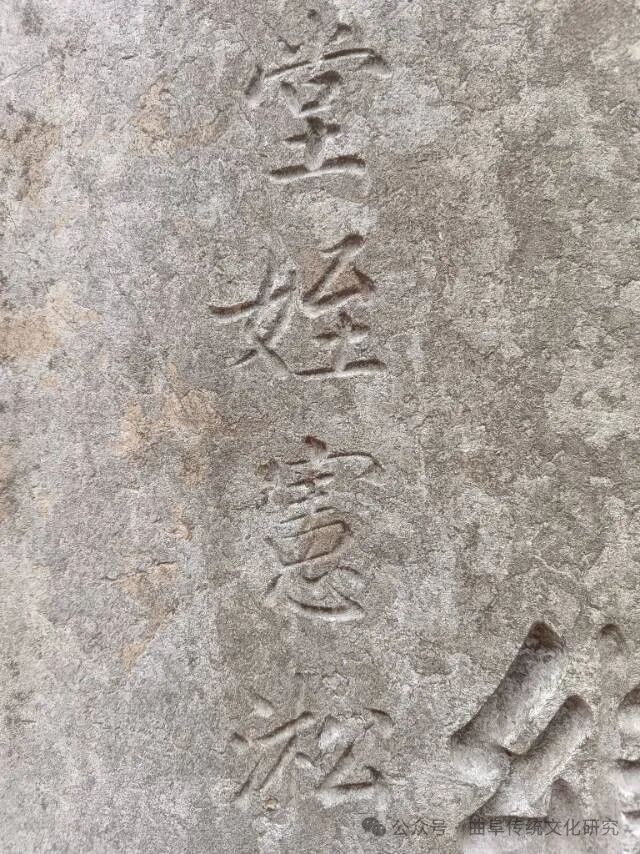 堂姪憲淞
公众号 曲阜传统文化研究